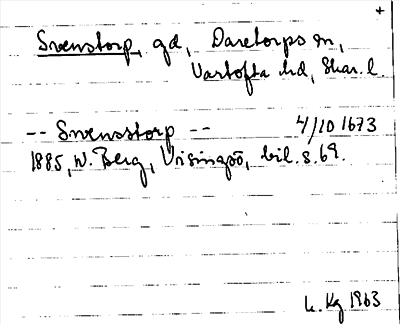 +
Svenstorp, gd, Daretorps sn,
Vartofta hd, Skar. l.
-- Swensstorp -- 4/10 1673
1885, W. Berg, Visingsö, bil. s. 69.
L. Kg 1963